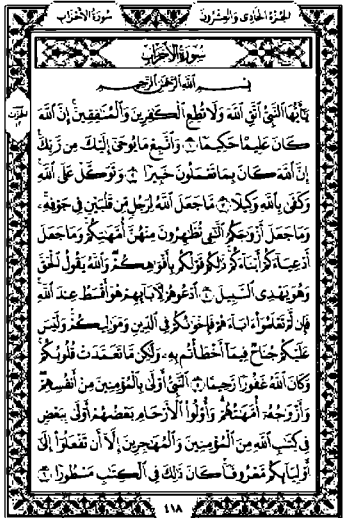 سُورَةُ الأَحْزَابِ
الجُزْءُ الحَادِي وَالعِشْرُونَ
سُورَةُ الأَحْزَابِ
بِسْمِ اللَّهِ الرَّحْمَٰنِ الرَّحِيمِ
يَٰٓأَيُّهَا ٱلنَّبِيُّ ٱتَّقِ ٱللَّهَ وَلَا تُطِعِ ٱلْكَٰفِرِينَ وَٱلْمُنَٰفِقِينَ إِنَّ ٱللَّهَ
كَانَ عَلِيمًا حَكِيمًا ١ وَٱتَّبِعْ مَا يُوحَىٰٓ إِلَيْكَ مِن رَّبِّكَ
إِنَّ ٱللَّهَ كَانَ بِمَا تَعْمَلُونَ خَبِيرًا ٢ وَتَوَكَّلْ عَلَى ٱللَّهِ
وَكَفَىٰ بِٱللَّهِ وَكِيلًا ٣ مَّا جَعَلَ ٱللَّهُ لِرَجُلٍ مِّن قَلْبَيْنِ فِي جَوْفِهِۦ
وَمَا جَعَلَ أَزْوَٰجَكُمُ ٱلَّٰٓـِٔي تُظَٰهِرُونَ مِنْهُنَّ أُمَّهَٰتِكُمْ وَمَا جَعَلَ
أَدْعِيَآءَكُمْ أَبْنَآءَكُمْ ذَٰلِكُمْ قَوْلُكُم بِأَفْوَٰهِكُمْ وَٱللَّهُ يَقُولُ ٱلْحَقَّ
وَهُوَ يَهْدِي ٱلسَّبِيلَ ٤ ٱدْعُوهُمْ لِـَٔابَآئِهِمْ هُوَ أَقْسَطُ عِندَ ٱللَّهِ
فَإِن لَّمْ تَعْلَمُوٓا۟ ءَابَآءَهُمْ فَإِخْوَٰنُكُمْ فِي ٱلدِّينِ وَمَوَٰلِيكُمْ وَلَيْسَ
عَلَيْكُمْ جُنَاحٌ فِيمَآ أَخْطَأْتُم بِهِۦ وَلَٰكِن مَّا تَعَمَّدَتْ قُلُوبُكُمْ
وَكَانَ ٱللَّهُ غَفُورًا رَّحِيمًا ٥ ٱلنَّبِيُّ أَوْلَىٰ بِٱلْمُؤْمِنِينَ مِنْ أَنفُسِهِمْ
وَأَزْوَٰجُهُۥٓ أُمَّهَٰتُهُمْ وَأُو۟لُوا۟ ٱلْأَرْحَامِ بَعْضُهُمْ أَوْلَىٰ بِبَعْضٍ
فِي كِتَٰبِ ٱللَّهِ مِنَ ٱلْمُؤْمِنِينَ وَٱلْمُهَٰجِرِينَ إِلَّآ أَن تَفْعَلُوٓا۟ إِلَىٰٓ
أَوْلِيَآئِكُم مَّعْرُوفًا كَانَ ذَٰلِكَ فِي ٱلْكِتَٰبِ مَسْطُورًا ٦
٤١٨